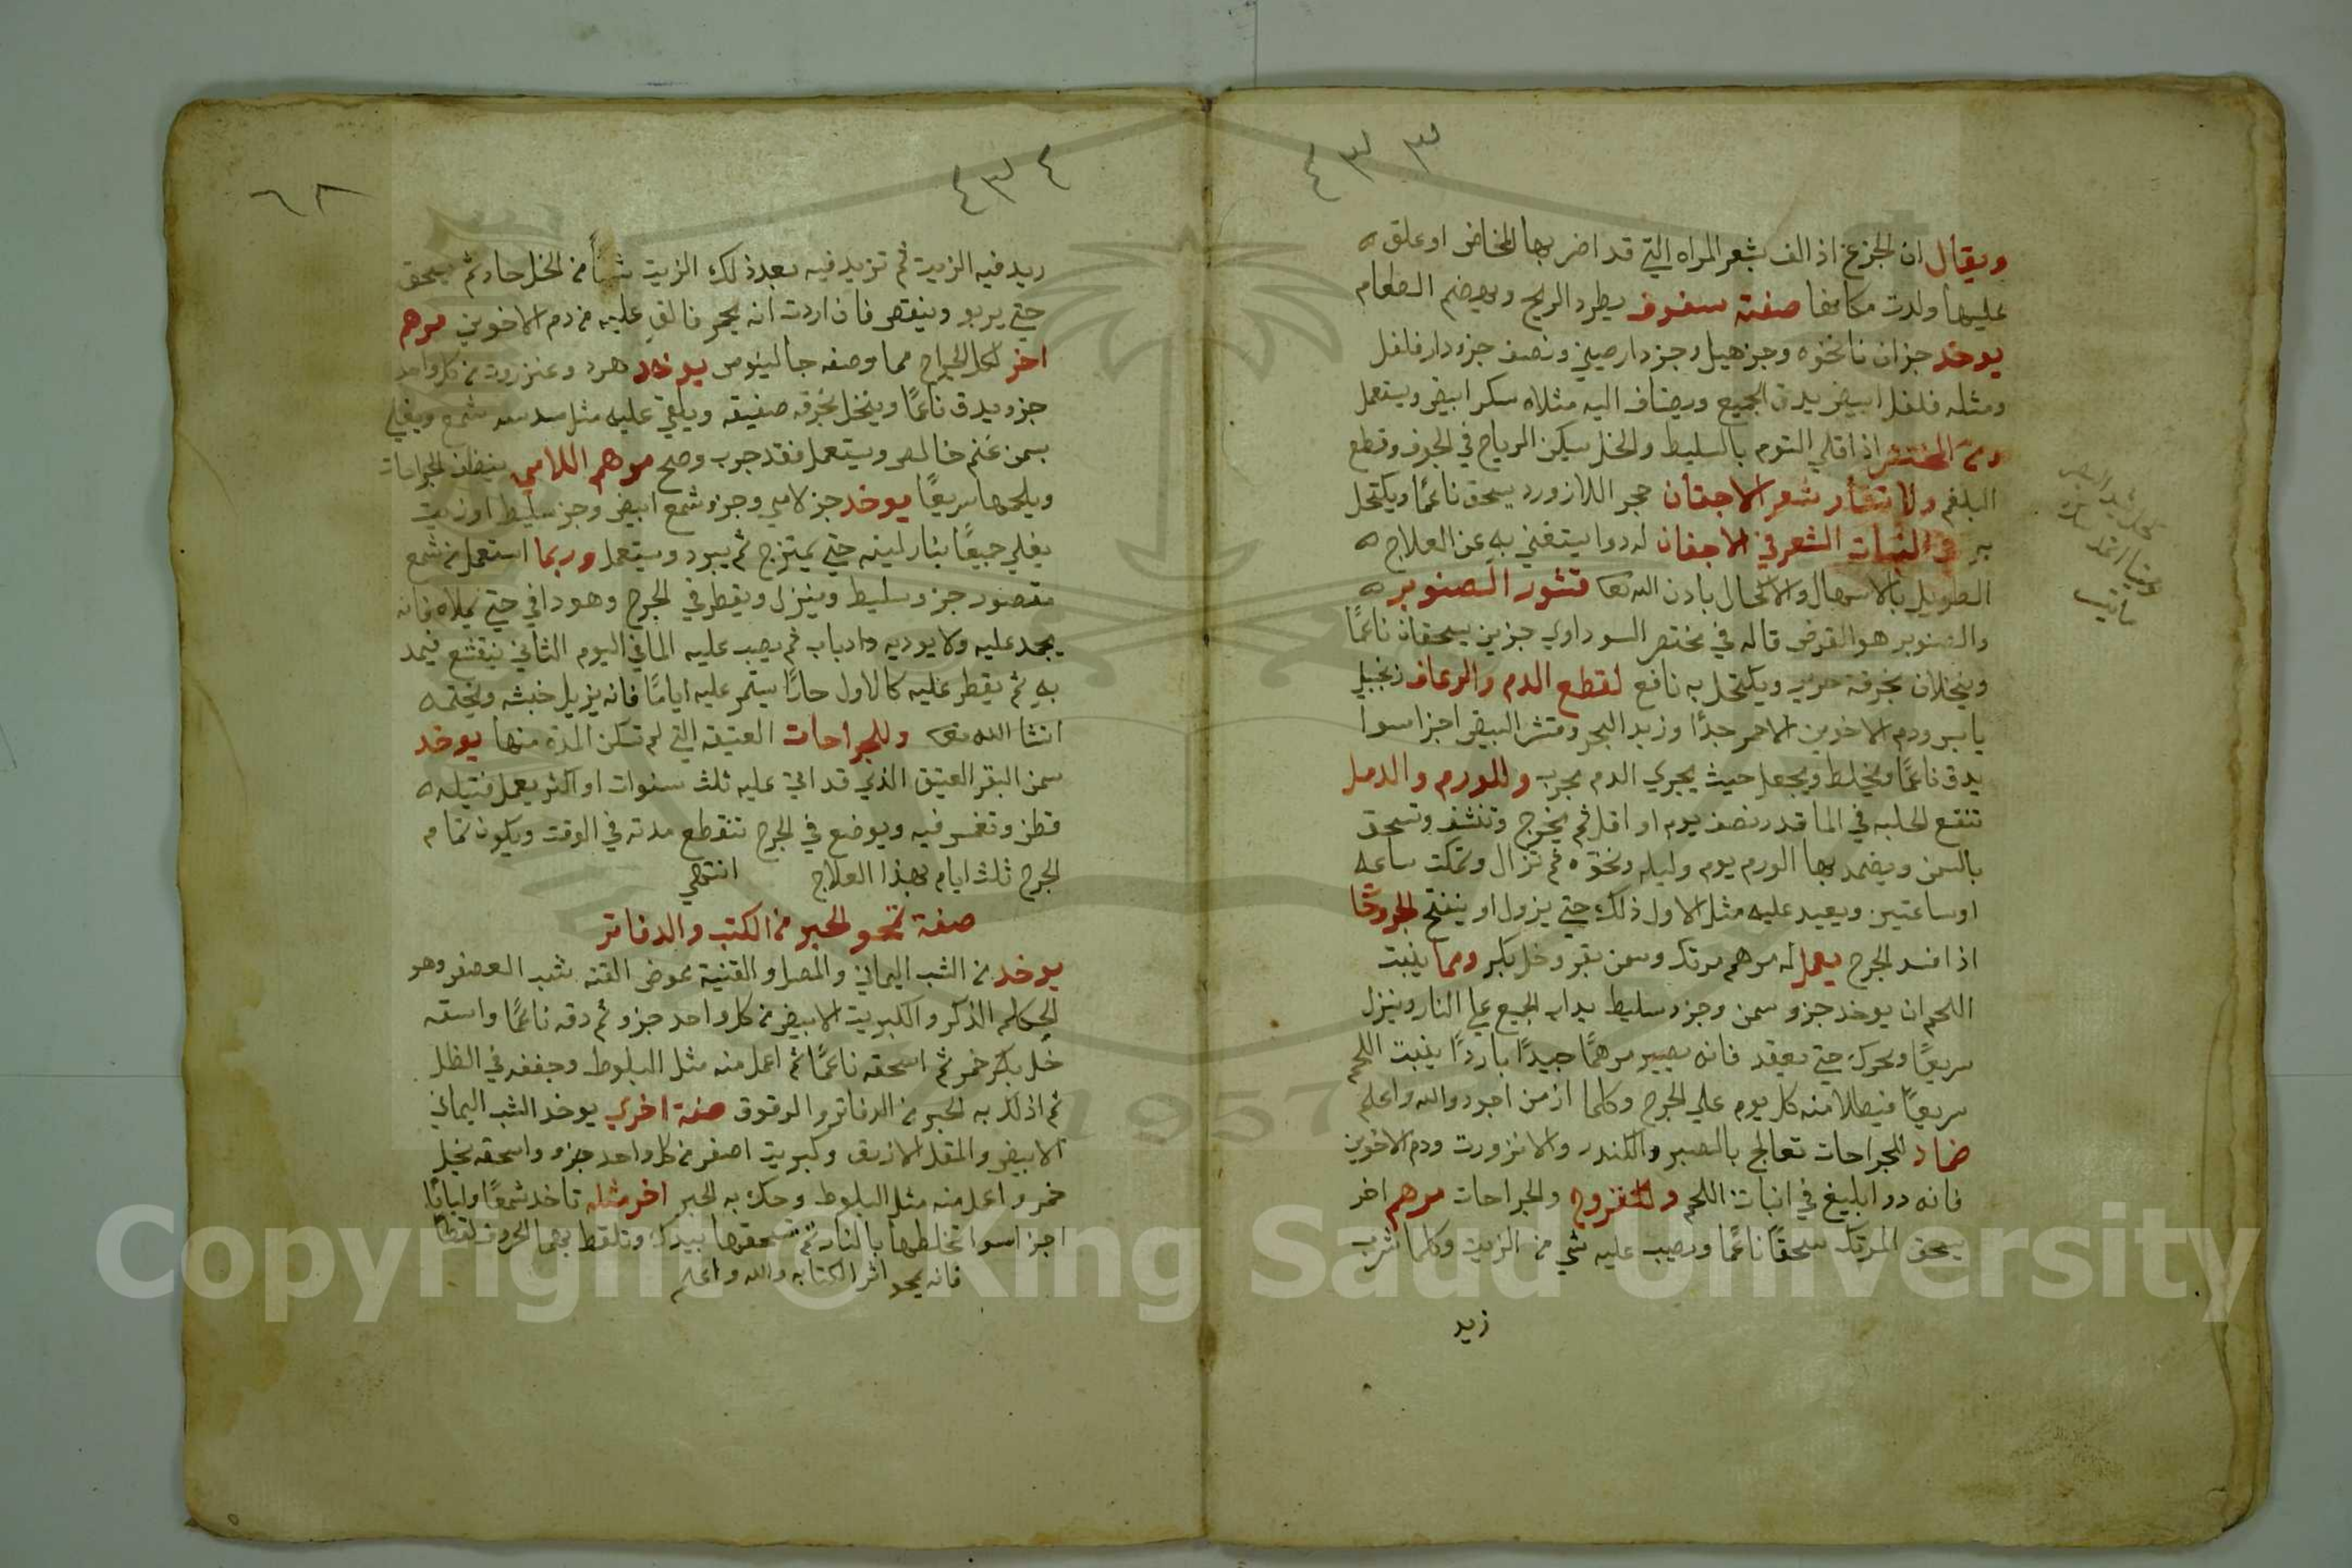 ٤٣٣
ويقال ان الجزع اذ الف بشعر المراه التي قد اضر بها المخاض او علق
عليها ولدت مكانها صفة سفوف يطرد الريح ويهضم الطعام
يوخد جزان نانخوه وجز هيل وجز دارصيني ونصف جزو دارفلفل
ومثله فلفل ابيض يدق الجميع ويضاف اليه مثلاه سكر ابيض ويستعمل
اذا قلي التوم بالسليط والخل سكن الرياح في الجوف وقطع
البلغم ولانتثار شعر الاجفان حجر اللازورد يسحق ناعمًا ويكتحل
به الشعر في الاجفان له دوا يستغني به عن العلاج
الطويل بالاسهال والاكحال بادن الله تعا قشور الصنوبر
والصنوبر هو القرض قاله في مختصر السوداوي جزين يسحقان ناعمًا
وينخلان بخرقة حرير ويكتحل به نافع لقطع الدم والرعاف زنجبيل
يابس ودم الاخوين الاحمر جدًا وزبد البحر وقشر البيض اجزا سوا
يدق ناعمًا ويخلط ويجعل حيث يجري الدم مجرب وللورم والدمل
تنقع الحلبه في الما قدر نصف يوم او اقل ثم يخرج وتنشف وتسحق
بالسمن ويضمد بها الورم يوم وليله ونحوه ثم تزال وتمكت ساعه
او ساعتين ويعيد عليه مثل الاول ذلك حتي يزول او ينفتح
اذا فسد الجرح يعمل له مرهم مرتك وسمن بقر وخل بكر ومما ينبت
اللحم ان يوخد جزو سمن وجزو سليط يداب الجميع علي النار وينزل
سريعًا ويحرك حتي يعقد فانه يصير مرهمًا جيدًا باردًا ينبت اللحم
سريعًا فيطلا منه كل يوم علي الجرح وكلما ازمن اجود والله واعلم
ضماد للجراحات تعالج بالصبر والكندر والانزورت ودم الاخوين
فانه دوا بليغ في انبات اللحم وللقروح والجراحات مرهم اخر
يسحق المرتك سحقًا ناعمًا ويصب عليه شي من الزيت وكلما شرب
زيد
٤٣٤
٦٨
زيد فيه الزيت ثم تزيد فيه بعد ذلك الزيت شيأ من الخل حاد ثم يسحق
حتي يربو وينقص فان اردت انه يحمر فالق عليه من دم الاخوين مرهم
اخر لكل الجراح مما وصفه جالينوس يوخد هرد وعنزروت من كل واحد
جزو يدق ناعمًا وينخل بخرقه صفيقه ويلقي عليه مثل شمع ويغلي
بسمن غنم خالص ويستعمل فقد جرب وصح مرهم اللامي ينظف الجراحات
ويلحمها سريعًا يوخد جز لامي وجزو شمع ابيض وجز سليط او زيت
يغلي جميعًا بنار لينه حتي يمتزج ثم يبرد ويستعمل وربما استعمل من شمع
مقصور جزو سليط وينزل ويقطر في الجرح وهو دافي حتي يملاه فانه
يجمد عليه ولا يوديه دباب ثم يصب عليه الما في اليوم الثاني ينقشع فيمد
به ثم يقطر عليه كالاول حارًا يستمر عليه ايامًا فانه يزيل خبثه ويختمه
انشا الله تعا وللجراحات العتيقه التي لم تسكن المدة منها يوخد
سمن البقر العتيق الذي قد اتي عليه ثلث سنوات او اكثر يعمل فتيله
قطن وتغمس فيه ويوضع في الجرح تنقطع مدته في الوقت ويكون تمام
الجرح ثلث ايام بهذا العلاج انتهي
صفة تمحو الحبر من الكتب والدفاتر
يوخد من الشب اليماني والمصل والقنية عوض القنه شب العصفر وهو
الحكالم الذكر والكبريت الابيض من كل واحد جزو ثم دقه ناعمًا واسقه
خل بكر خمر ثم اسحقه ناعمًا ثم اعمل منه مثل البلوط وجففه في الظل
ثم اذلك به الحبر من الدفاتر والرقوق صفة اخري يوخد الشب اليماني
الابيض والمقل الازرق وكبريت اصفر من كل واحد جزو واسحقه بخل
خمر واعمل منه مثل البلوط وحك به الحبر اخر مثله تاخد شمعًا ولبانًا
اجزا سوا تخلطها بالنار ثم تسحقها بيدك وتلقط بهما الحروف لقطا
فانه يمحو اثر الكتابه والله واعلم
1957
Copyright © King Saud University